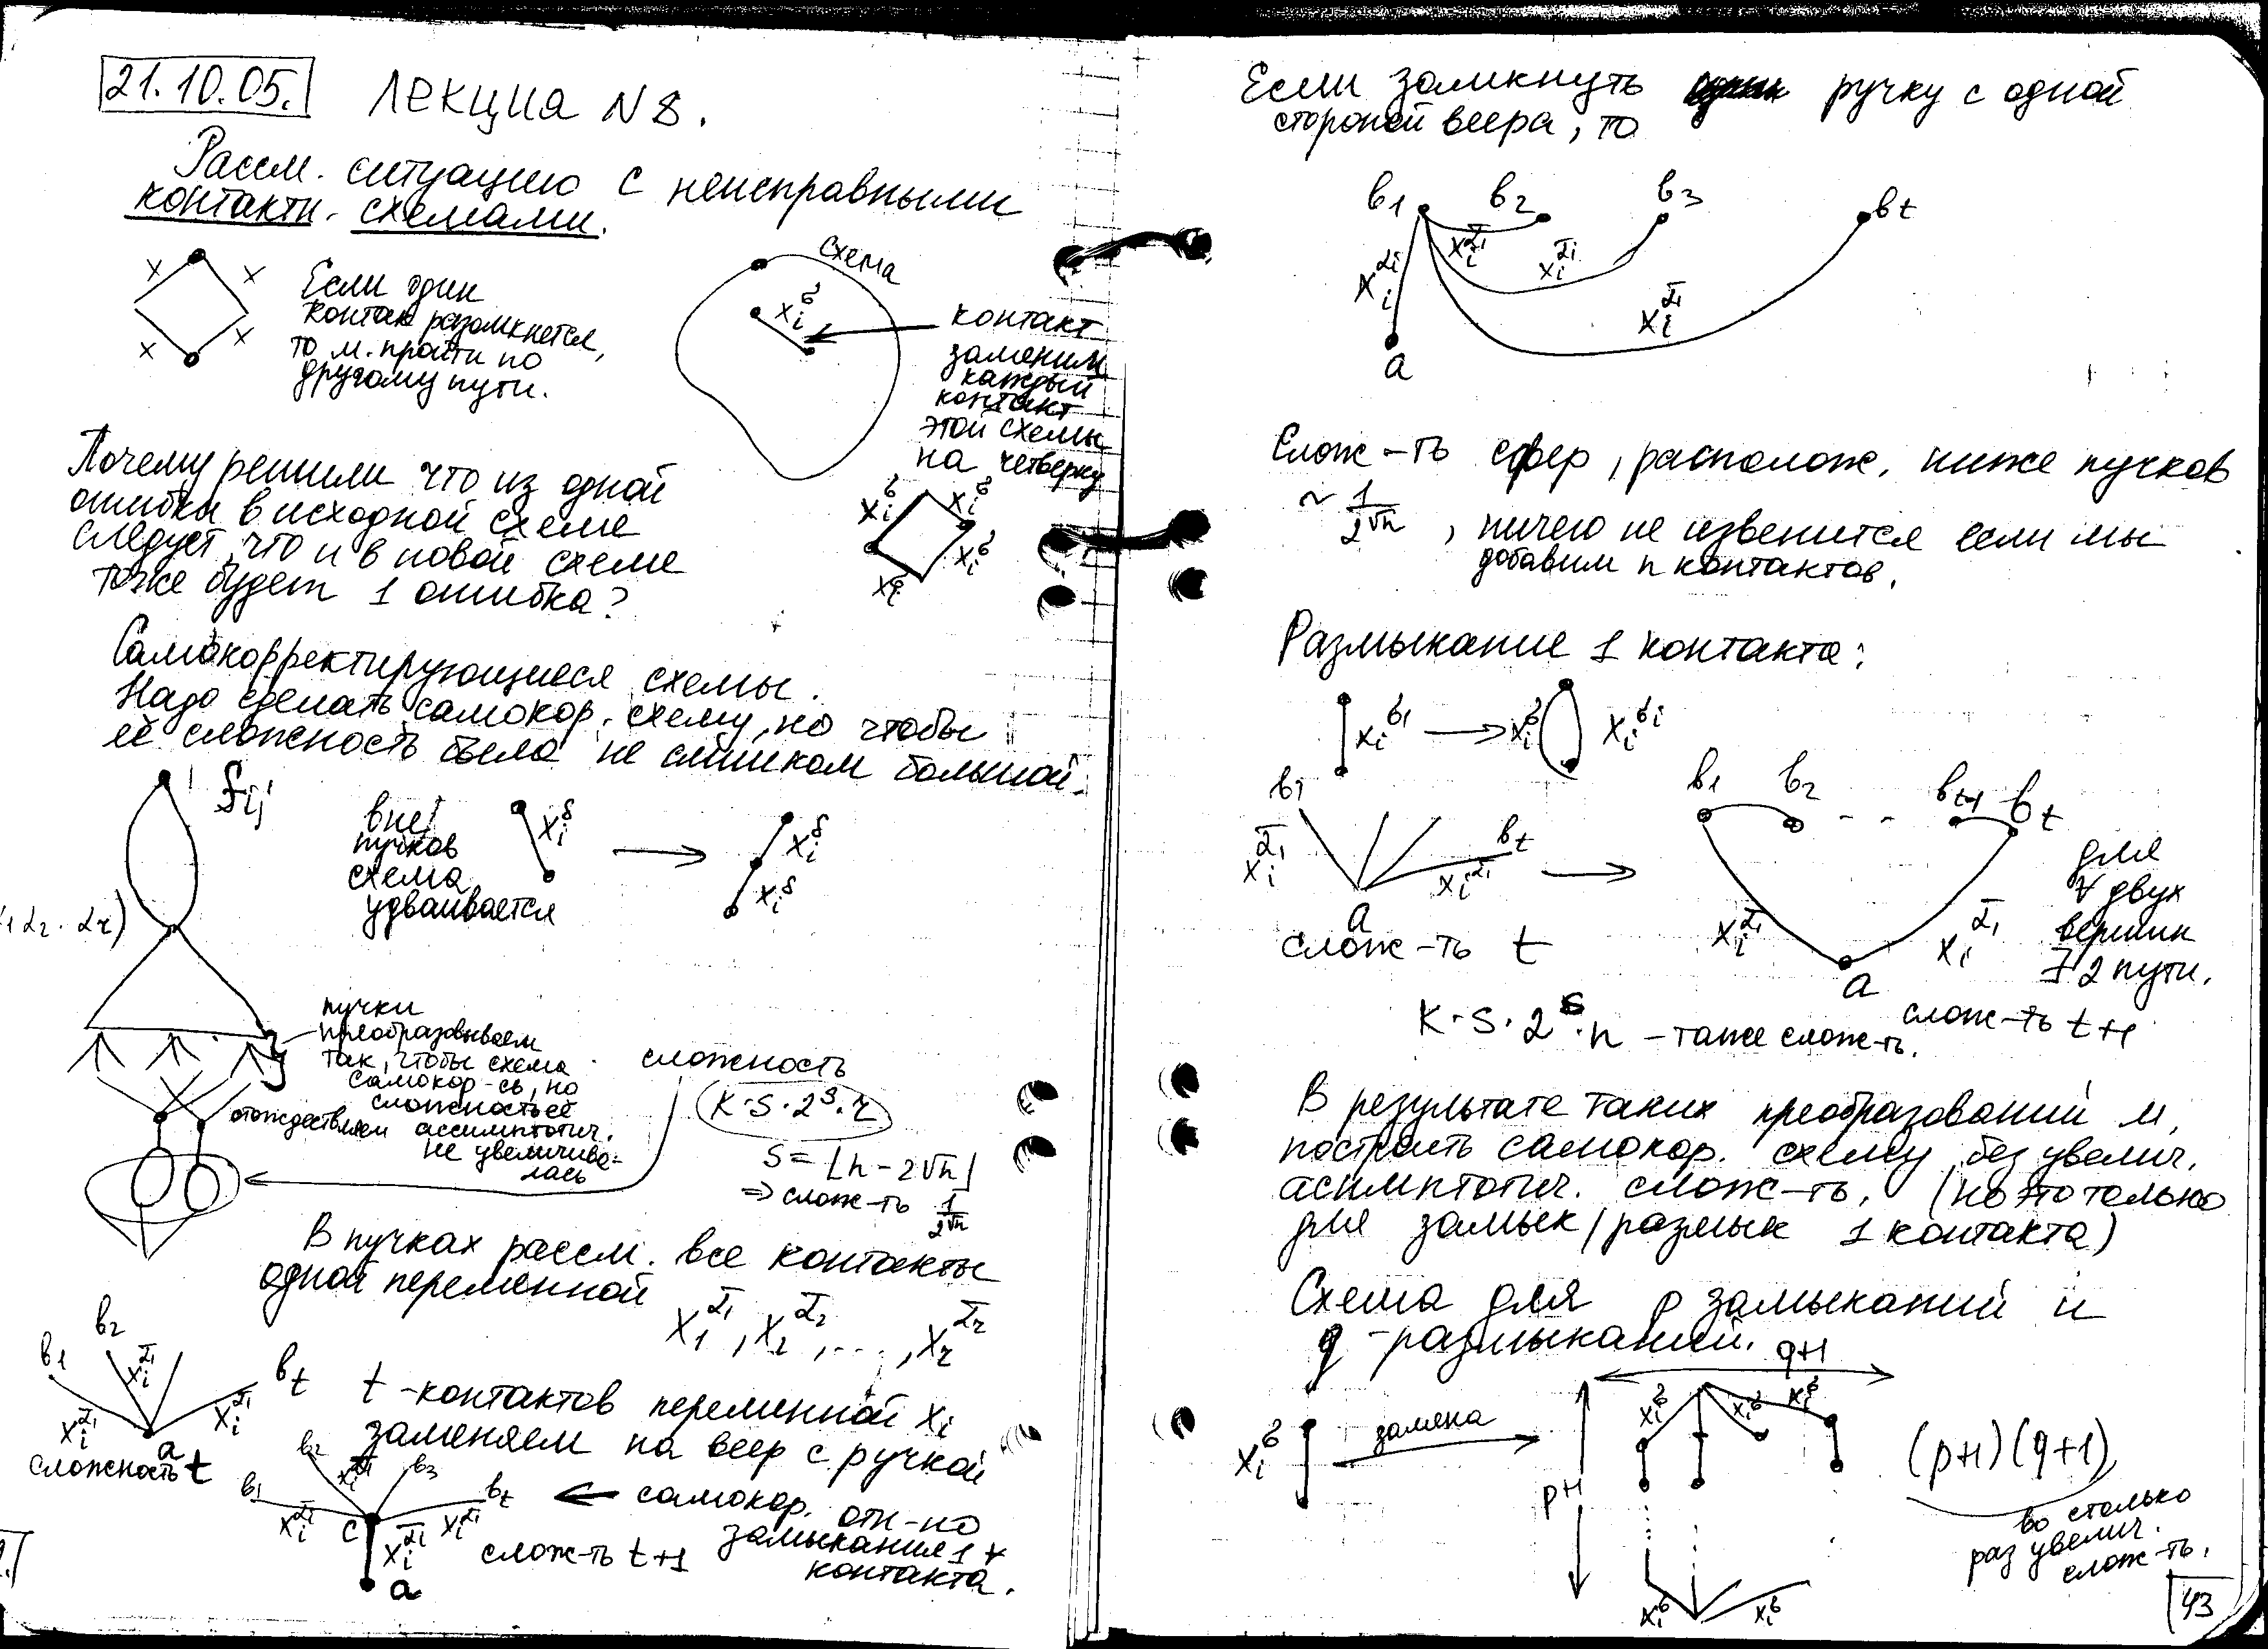 21.10.05.
Лекция N 8.
Рассм. ситуацию с неисправными
контактн. схемами.
x x
x x
Если один
контакт разомкнется,
то м. пройти по
другому пути.
схема
x_i^σ
контакт
заменим
каждый
контакт
этой схемы
на четверку
x_i^σ x_i^σ
x_i^σ x_i^σ
Почему решили что из одной
ошибки в исходной схеме
следует, что и в новой схеме
тоже будет 1 ошибка?
Самокорректирующиеся схемы.
Надо сделать самокор. схему, но чтобы
её сложность была не слишком большой.
f_ij
вне
пучков
схема
удваивается
x_i^δ
x_i^δ
x_i^δ
пучки
преобразовываем
так, чтобы схема
самокор-сь, но
сложность её
ассимптотич.
не увеличива-
лась
отождествляем
сложность
K·S·2^S·r
S = [n - 2√n]
⇒ слож-ть 1/2^√n
В пучках рассм. все контакты
одной переменной
x_1^ᾱ1, x_2^ᾱ2, ..., x_r^ᾱr
b_1 b_2 b_t
x_i^ᾱ1 x_i^ᾱ1 x_i^ᾱ1
a
сложность t
t - контактов переменной x_i
заменяем на веер с ручкой
b_1 b_2 b_3 b_t
x_i^ᾱ1 x_i^ᾱ1 c x_i^ᾱ1 x_i^ᾱ1
a
← самокор. отн-но
замыкания 1
контакта.
слож-ть t+1
Если замкнуть ручку с одной
стороной веера, то
b_1 b_2 b_3 b_t
x_i^ᾱi x_i^ᾱ1 x_i^ᾱ1 x_i^ᾱ1
a
Слож-ть сфер, располож. ниже пучков
~ 1/2^√n, ничего не изменится если мы
добавим n контактов.
Размыкание 1 контакта:
x_i^σ1 → x_i^σ x_i^σi
b_1 b_t
x_i^ᾱ1 x_i^ᾱ1
a
слож-ть t
b_1 b_2 - - b_t-1 b_t
x_i^ᾱ1 x_i^ᾱ1
a
для
∀ двух
вершин
∃ 2 пути.
слож-ть t+1
K·S·2^S·n - таже слож-ть.
В результате таких преобразований м.
построить самокор. схему без увелич.
асимптотич. слож-ть, (но это только
для замык/размык 1 контакта)
Схема для p замыканий и
q - размыканий.
x_i^σ замена
q+1
p+1
x_i^σ x_i^σ x_i^σ
x_i^σ x_i^σ
(p+1)(q+1)
во столько
раз увелич.
слож-ть.
43